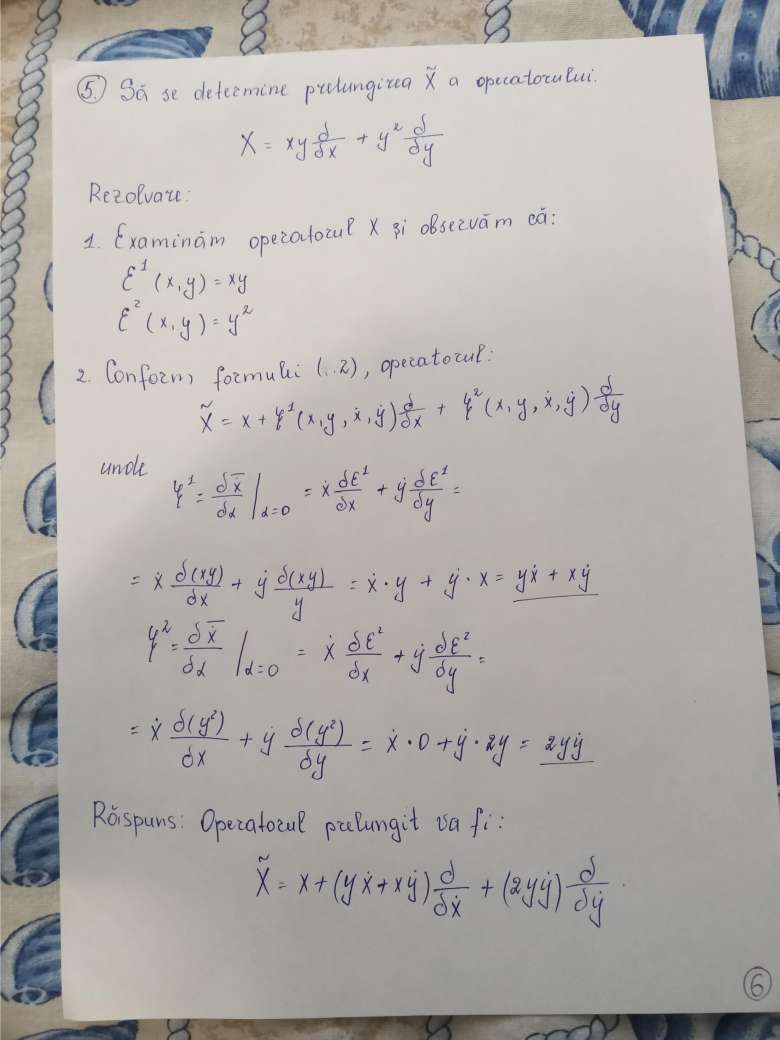 5. Să se determine prelungirea X̃ a operatorului.
X = xy ∂/∂x + y² ∂/∂y
Rezolvare:
1. Examinăm operatorul X și observăm că:
ξ¹(x,y) = xy
ξ²(x,y) = y²
2. Conform formulei (..2), operatorul:
X̃ = x + ψ¹(x,y,ẋ,ẏ) ∂/∂x + ψ²(x,y,ẋ,ẏ) ∂/∂y
unde
ψ¹ = ∂ẋ̅/∂α |α=0 = ẋ ∂ξ¹/∂x + ẏ ∂ξ¹/∂y =
= ẋ ∂(xy)/∂x + ẏ ∂(xy)/y = ẋ·y + ẏ·x = yẋ + xẏ
ψ² = ∂ẋ̅/∂α |α=0 = ẋ ∂ξ²/∂x + ẏ ∂ξ²/∂y =
= ẋ ∂(y²)/∂x + ẏ ∂(y²)/∂y = ẋ·0 + ẏ·2y = 2yẏ
Răspuns: Operatorul prelungit va fi:
X̃ = x + (yẋ + xẏ) ∂/∂ẋ + (2yẏ) ∂/∂ẏ.
6